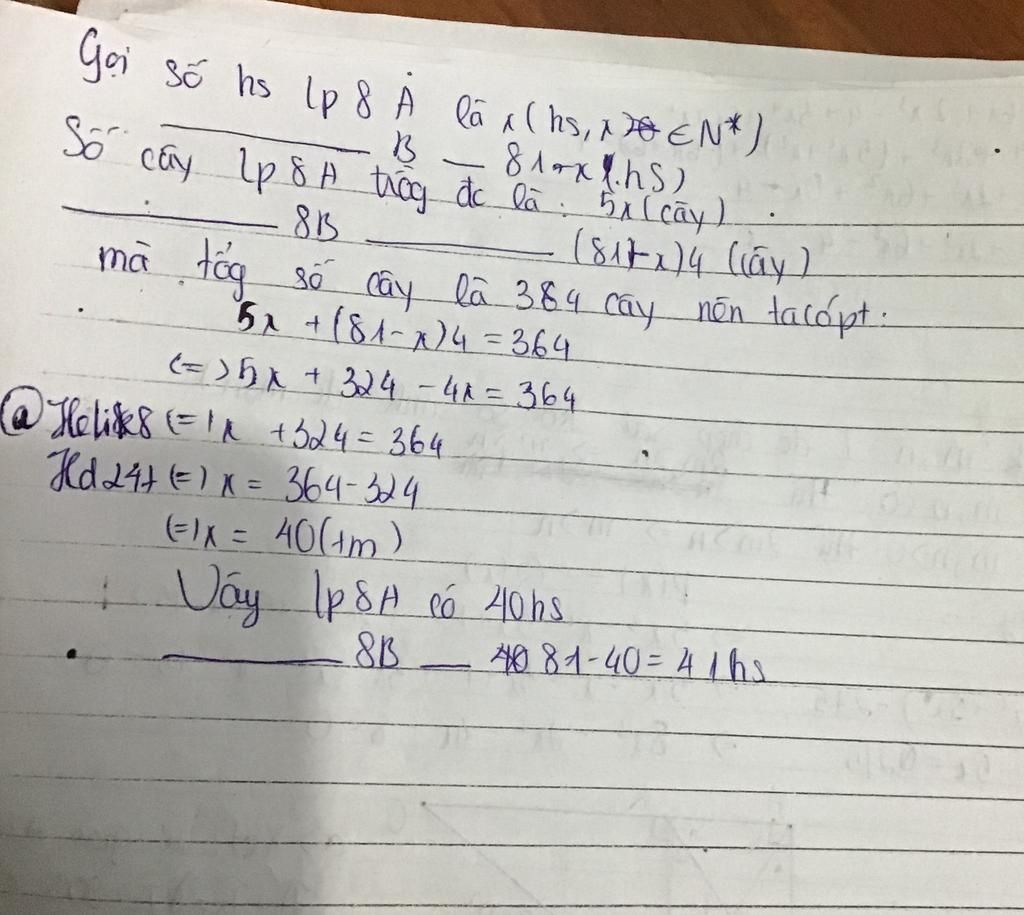 Gọi số hs lp 8A là x (hs, x ∈ N*)
———— B — 81-x (hs)
Số cây lp 8A trồg đc là: 5x (cây)
———— 8B ———— (81-x)4 (cây)
mà tổg số cây là 384 cây nên ta có pt:
5x + (81-x)4 = 364
(=) 5x + 324 - 4x = 364
(=) x + 324 = 364
(=) x = 364-324
(=) x = 40 (tm)
Vậy lp 8A có 40hs
———— 8B — 81-40 = 41hs